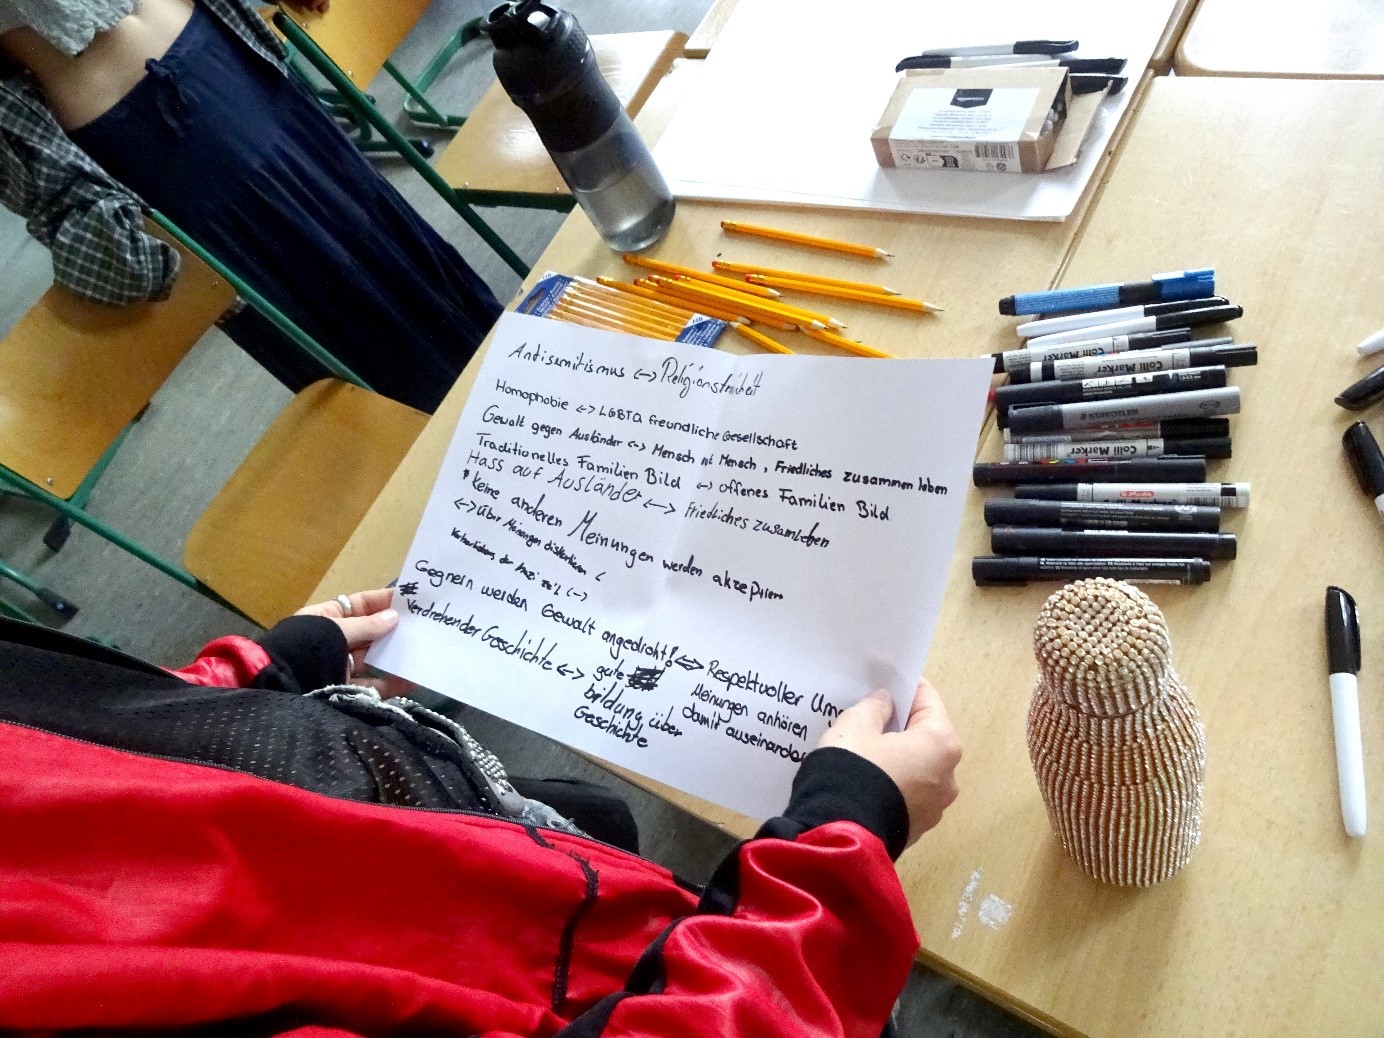 Antisemitismus <-> Religionsfreiheit
Homophobie <-> LGBTQ freundliche Gesellschaft
Gewalt gegen Ausländer <-> Mensch ist Mensch, Friedliches zusammen leben
Traditionelles Familien Bild <-> offenes Familien Bild
Hass auf Ausländer <-> Friedliches zusamleben
keine anderen Meinungen werden akzeptiert
<-> über Meinungen diskutieren
Verherrlichung der Nazi zeit <->
Gegnern werden Gewalt angedroht! <-> Respektvoller Umg
Meinungen anhören
damit auseinander
Verdrehender Geschichte <-> gute
bildung über
Geschichte
Colli Marker
Colli Marker
Colli Marker
edding